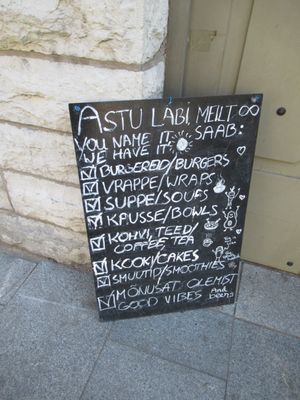 ASTU LÄBI MEILT
YOU NAME IT SAAB:
WE HAVE IT
BURGEREID/BURGERS
VRAPPE/WRAPS
SUPPE/SOUPS
KAUSSE/BOWLS
KOHVI, TEED/
COFFEE TEA
KOOKY/CAKES
SMUUTID/SMOOTHIES
MÕNUSAT OLEMIST
GOOD VIBES and beers